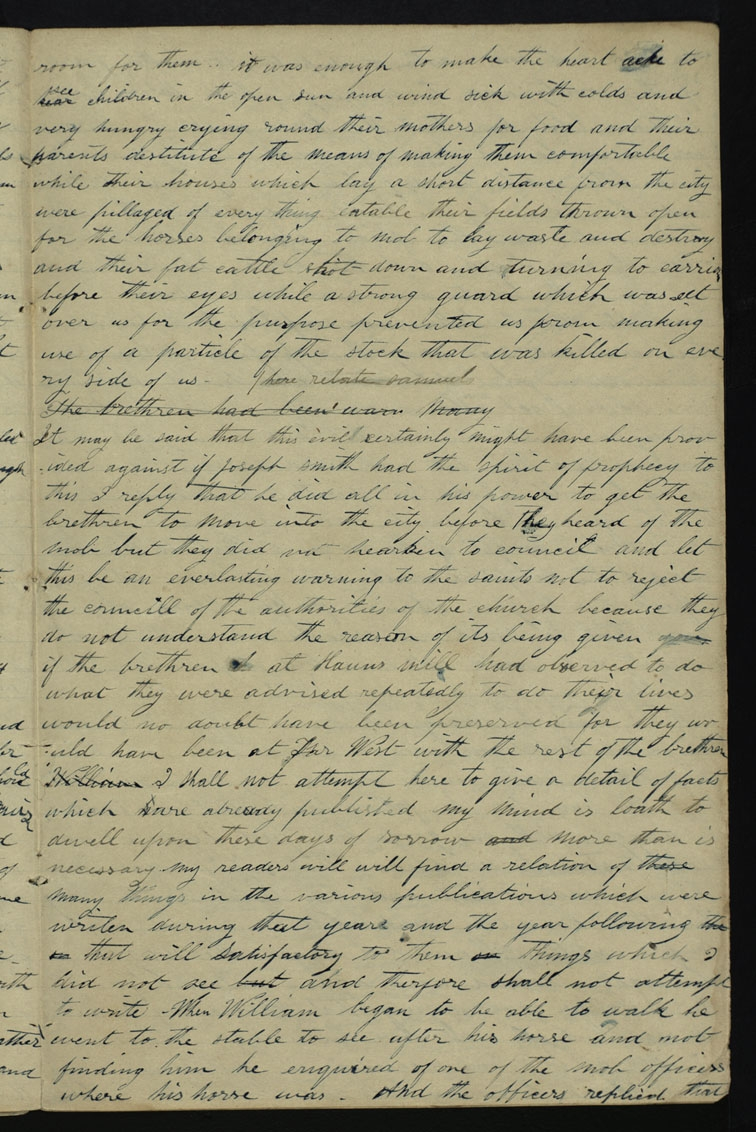 room for them .. it was enough to make the heart ache to
see children in the open sun and wind sick with colds and
very hungry crying round their mothers for food and their
parents destitute of the means of making them comfortable
while their houses which lay a short distance from the city
were pillaged of every thing eatable their fields thrown open
for the horses belonging to mob to lay waste and destroy
and their fat cattle shot down and turning to carrion
before their eyes while a strong guard which was set
over us for the purpose prevented us from making
use of a particle of the stock that was killed on eve
ry side of us - here relate samuel
The brethren had been warn
It may be said that this evil certainly might have been prov
ided against if Joseph smith had the spirit of prophecy to
this I reply that he did all in his power to get the
brethren to move into the city before they heard of the
mob but they did not hearken to council and let
this be an everlasting warning to the saints not to reject
the councill of the authorities of the church because they
do not understand the reason of its being given
if the brethren at Hauns mill had observed to do
what they were advised repeatedly to do their lives
would no doubt have been preserved for they wo
uld have been at Far West with the rest of the brethren
I shall not attempt here to give a detail of facts
which are already published my mind is loath to
dwell upon these days of sorrow and more than is
necessary my readers will will find a relation of these
many things in the various publications which were
writen during that year and the year following the
in that will satisfactory to them things which I
did not see but and therfore shall not attempt
to write When William began to be able to walk he
went to the stable to see after his horse and not
finding him he enquired of one of the mob officers
where his horse was - And the officers replied that